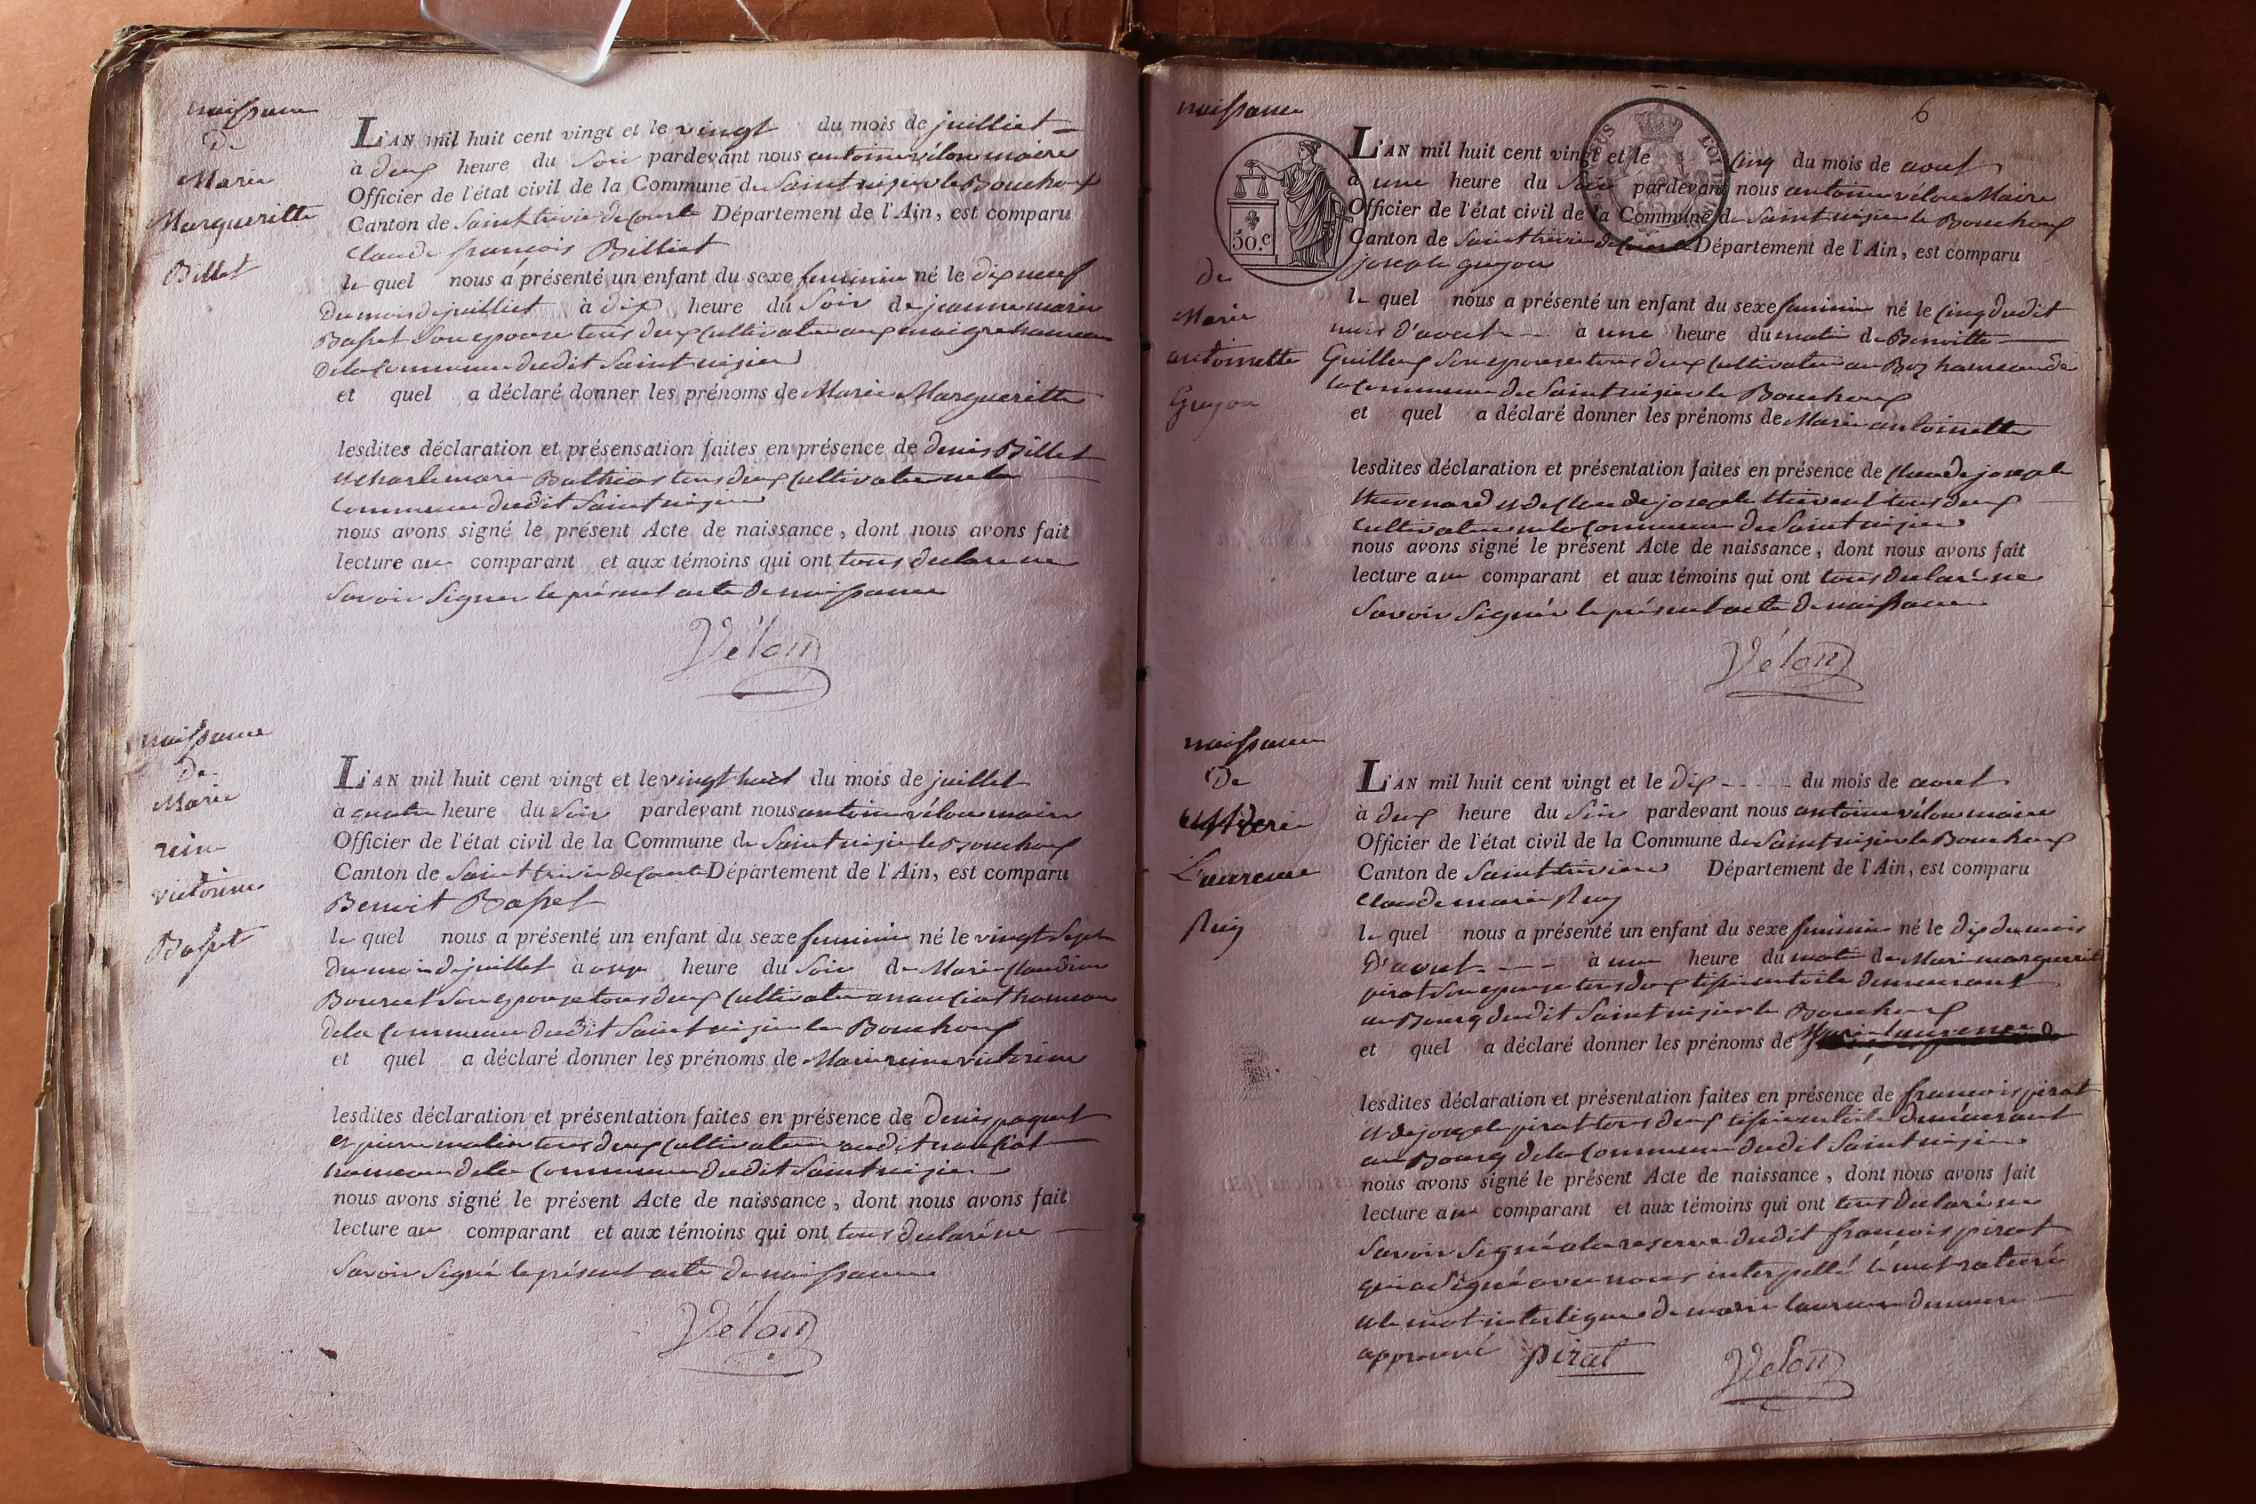 naissance
de
Marie
Margueritte
Billet
L'AN mil huit cent vingt et le vingt du mois de juilliet
à deux heure du soir pardevant nous antoine vélon maire
Officier de l'état civil de la Commune de Saint nizier le Bouchoux
Canton de Saint trivier de Courte Département de l'Ain, est comparu
Claude francois Billiet
le quel nous a présenté un enfant du sexe feminin né le dix neuf
du mois de juilliet à dix heure du soir de jeanne marie
Basset son epouse tous deux cultivateur aux hameau
de la commune dudit Saint nizier
et quel a déclaré donner les prénoms de Marie Margueritte
lesdites déclaration et présensation faites en présence de denis Billet
et Mathias tous deux cultivateur
commune dudit Saint nizier
nous avons signé le présent Acte de naissance, dont nous avons fait
lecture au comparant et aux témoins qui ont tous declare ne
savoir signer le présent acte de naissance
Vélon
naissance
de
Marie
reine
victorine
Basset
L'AN mil huit cent vingt et le vingt huit du mois de juillet
à quatre heure du soir pardevant nous antoine vélon maire
Officier de l'état civil de la Commune de Saint nizier le Bouchoux
Canton de Saint trivier de Courte Département de l'Ain, est comparu
Benoit Basset
le quel nous a présenté un enfant du sexe feminin né le vingt sept
du mois de juillet à onze heure du soir de Marie Claudine
son epouse tous deux cultivateur hameau
de la commune dudit Saint nizier le Bouchoux
et quel a déclaré donner les prénoms de Marie reine victorine
lesdites déclaration et présentation faites en présence de denis paquet
et pierre tous deux cultivateur audit
hameau de la commune dudit Saint nizier
nous avons signé le présent Acte de naissance, dont nous avons fait
lecture au comparant et aux témoins qui ont tous declaré ne
savoir signé le présent acte de naissance
Vélon
6
naissance
de
Marie
antoinette
Guyon
50 c
L'AN mil huit cent vingt et le cinq du mois de aout
à une heure du soir pardevant nous antoine vélon Maire
Officier de l'état civil de la Commune de Saint nizier le Bouchoux
Canton de Saint trivier de Courte Département de l'Ain, est comparu
joseph guyon
le quel nous a présenté un enfant du sexe feminin né le cinq dudit
mois d'aout à une heure du matin de Benoitte
son epouse tous deux cultivateur au Boz hameau de
la commune de Saint nizier le Bouchoux
et quel a déclaré donner les prénoms de Marie antoinette
lesdites déclaration et présentation faites en présence de Claude joseph
thevenard et de Claude joseph thevent tous deux
cultivateur en la commune de Saint nizier
nous avons signé le présent Acte de naissance, dont nous avons fait
lecture au comparant et aux témoins qui ont tous declaré ne
savoir signée le présent acte de naissance
Vélon
naissance
De
Laurence
L'AN mil huit cent vingt et le dix du mois de aout
à deux heure du soir pardevant nous antoine vélon maire
Officier de l'état civil de la Commune de Saint nizier le Bouchoux
Canton de Saint trivier Département de l'Ain, est comparu
Claude marie
le quel nous a présenté un enfant du sexe feminin né le dix du mois
D'aout à une heure du matin de Marie marguerite
pirat son epouse tous deux demeurant
au Bourg dudit Saint nizier le Bouchoux
et quel a déclaré donner les prénoms de Marie laurence
lesdites déclaration et présentation faites en présence de francois pirat
et de joseph pirat tous deux demeurant
au Bourg de la commune dudit Saint nizier
nous avons signé le présent Acte de naissance, dont nous avons fait
lecture au comparant et aux témoins qui ont tous declaré ne
savoir signé a la reserve dudit francois pirat
qui a signé avec nous interpellé le mot raturé
et le mot interligne de marie laurence demeure
approuvé pirat Vélon